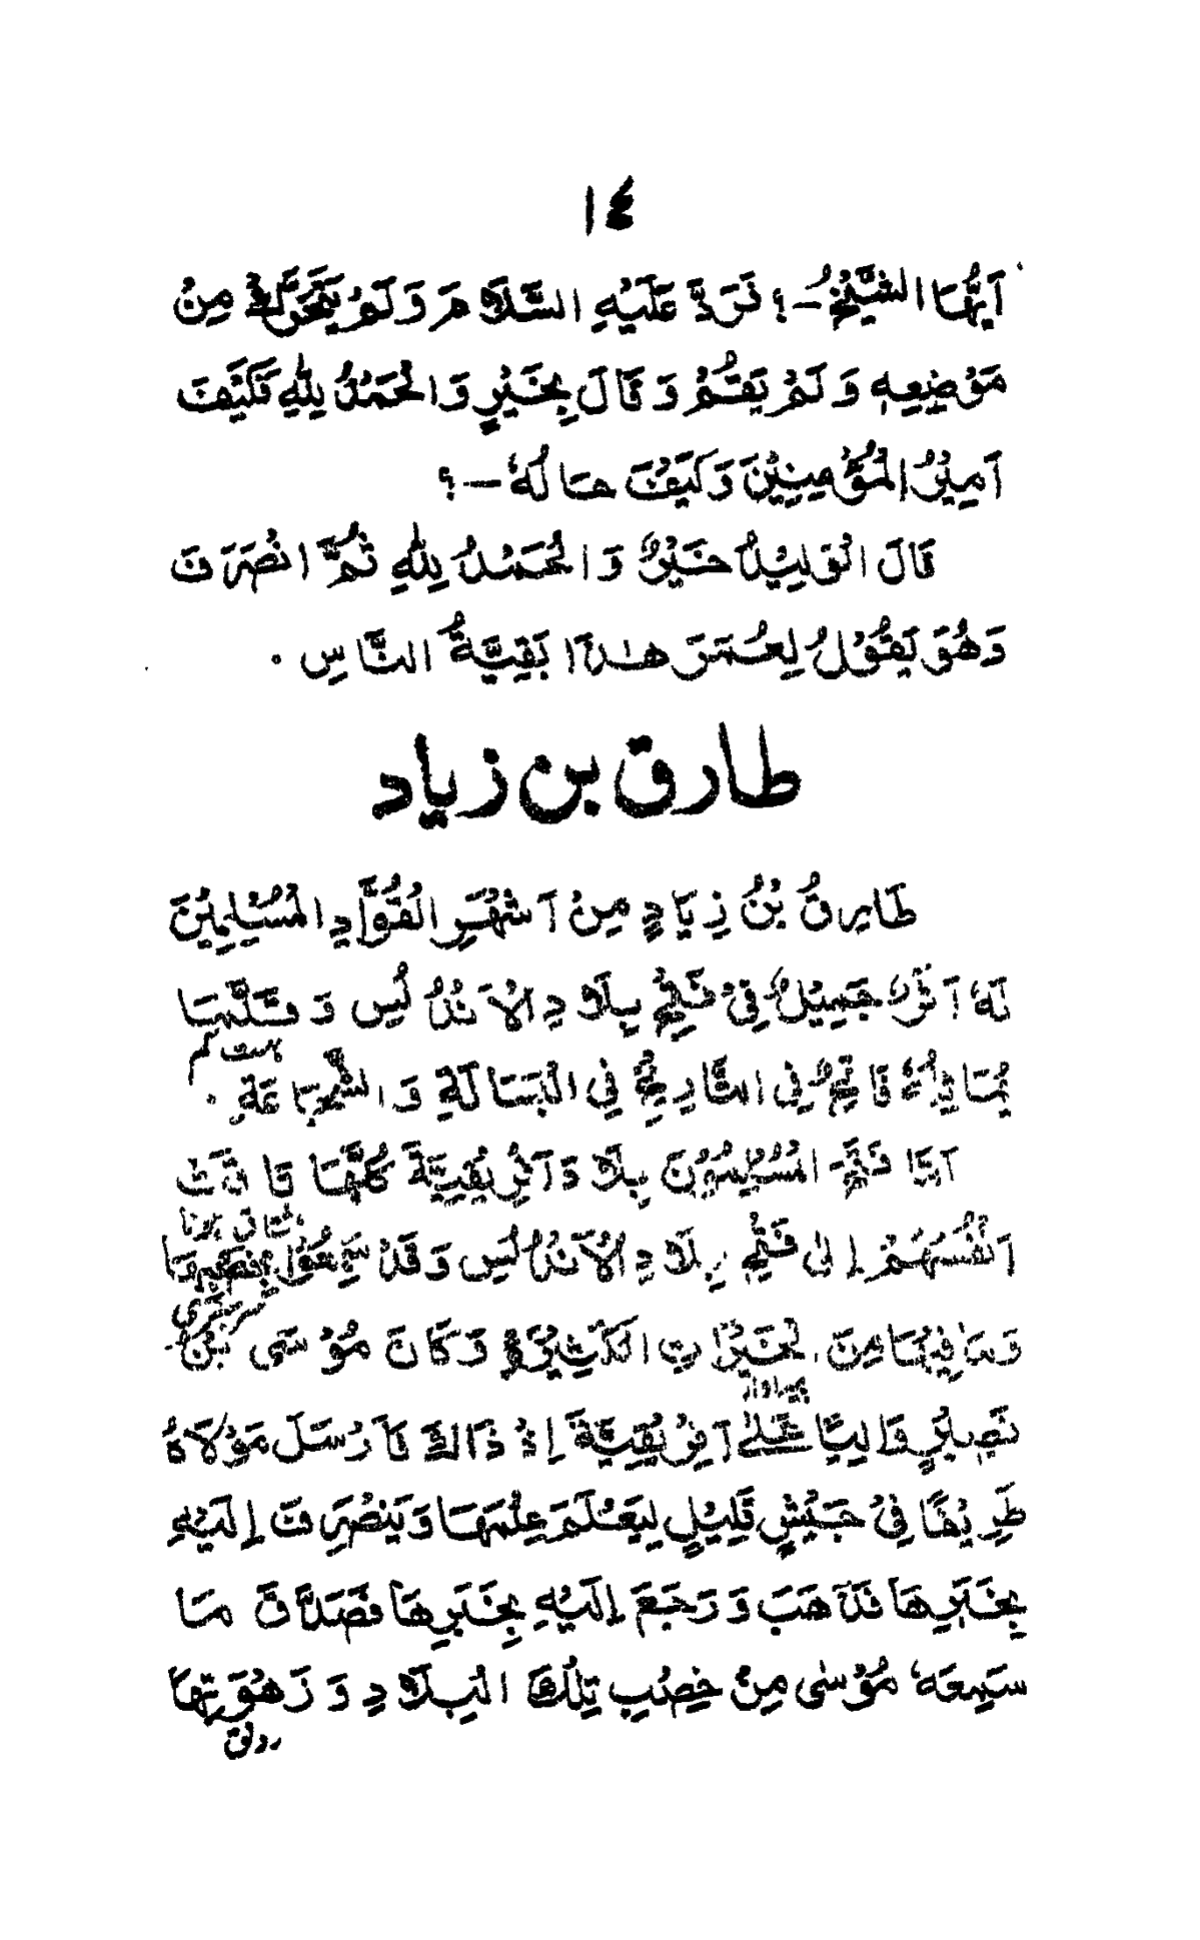 ١٤
اَيُّهَا الشَّيْخُ ـ؟ فَرَدَّ عَلَيْهِ السَّلَامَ وَلَمْ يَتَحَرَّكْ مِنْ
مَوْضِعِهٖ وَلَمْ يَقُمْ وَقَالَ بِخَيْرٍ وَالْحَمْدُ لِلّٰهِ فَكَيْفَ
اَمِيْرُ الْمُؤْمِنِيْنَ وَكَيْفَ حَالُهٗ ـ؟
قَالَ الْوَلِيْدُ خَيْرٌ وَالْحَمْدُ لِلّٰهِ ثُمَّ انْصَرَفَ
وَهُوَ يَقُوْلُ لِعُمَرَ هٰذَا بَقِيَّةُ النَّاسِ ۰
طارق بن زياد
طَارِقُ بْنُ زِيَادٍ مِنْ اَشْهَرِ الْقُوَّادِ الْمُسْلِمِيْنَ
لَهٗ اَثَرٌ جَمِيْلٌ فِىْ فَتْحِ بِلَادِ الْاَنْدُلُسِ وَقَلَّمَا
بہت کم
يُمَاثِلُهٗ فَاتِحٌ فِى التَّارِيْخِ فِى الْبَسَالَةِ وَالشَّجَاعَةِ ۰
لَمَّا فَتَحَ الْمُسْلِمُوْنَ بِلَادَ اَفْرِيْقِيَّةَ كُلَّهَا تَاقَتْ
مشتاق ہونا
اَنْفُسُهُمْ اِلٰى فَتْحِ بِلَادِ الْاَنْدُلُسِ وَقَدْ سَمِعُوْا بِخِصْبِهَا
سرسبزی
وَمَا فِيْهَا مِنَ الْخَيْرَاتِ الْكَثِيْرَةِ وَكَانَ مُوْسَى بْنُ
پیداوار
نَصِيْرٍ وَالِيًا عَلٰى اَفْرِيْقِيَّةَ اِذْ ذَاكَ فَاَرْسَلَ مَوْلَاهُ
طَرِيْفًا فِىْ جَيْشٍ قَلِيْلٍ لِيَعْلَمَ عِلْمَهَا وَيَنْصَرِفَ اِلَيْهِ
بِخَبَرِهَا فَذَهَبَ وَرَجَعَ اِلَيْهِ بِخَبَرِهَا فَصَدَّقَ مَا
سَمِعَهٗ مُوْسٰى مِنْ خِصْبِ تِلْكَ الْبِلَادِ وَزَهْوَتِهَا
رونق